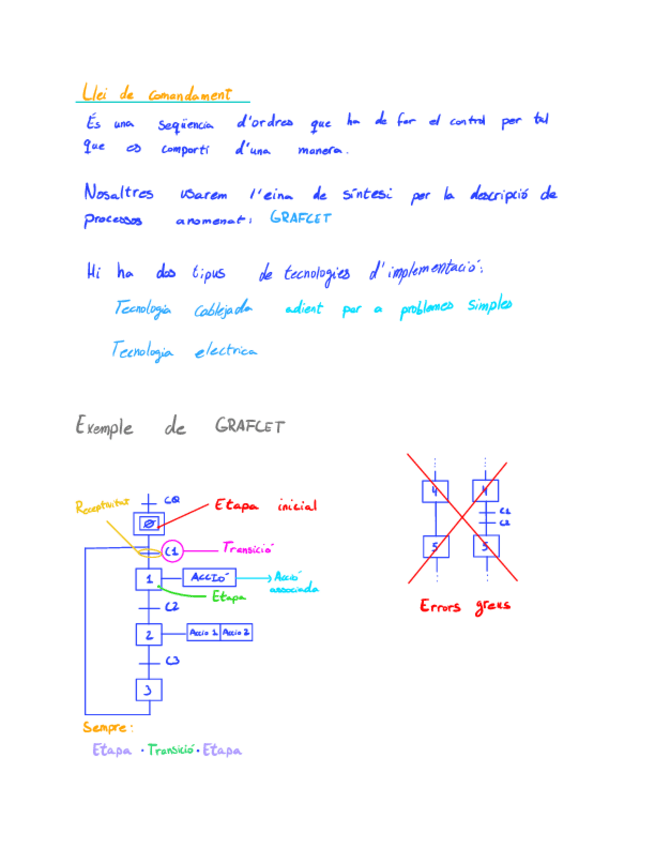 Llei de comandament
És una seqüència d'ordres que ha de fer el control per tal
que es comporti d'una manera.
Nosaltres usarem l'eina de síntesi per la descripció de
processos anomenat: GRAFCET
Hi ha dos tipus de tecnologies d'implementació:
Tecnologia cablejada adient per a problemes simples
Tecnologia electrica
Exemple de GRAFCET
Receptivitat
C0
Etapa inicial
Ø
C1
Transició
1
ACCIÓ
Acció
associada
Etapa
C2
2
Acció 1 Acció 2
C3
3
Sempre:
Etapa · Transició · Etapa
4 4
C1
C2
5 5
Errors greus